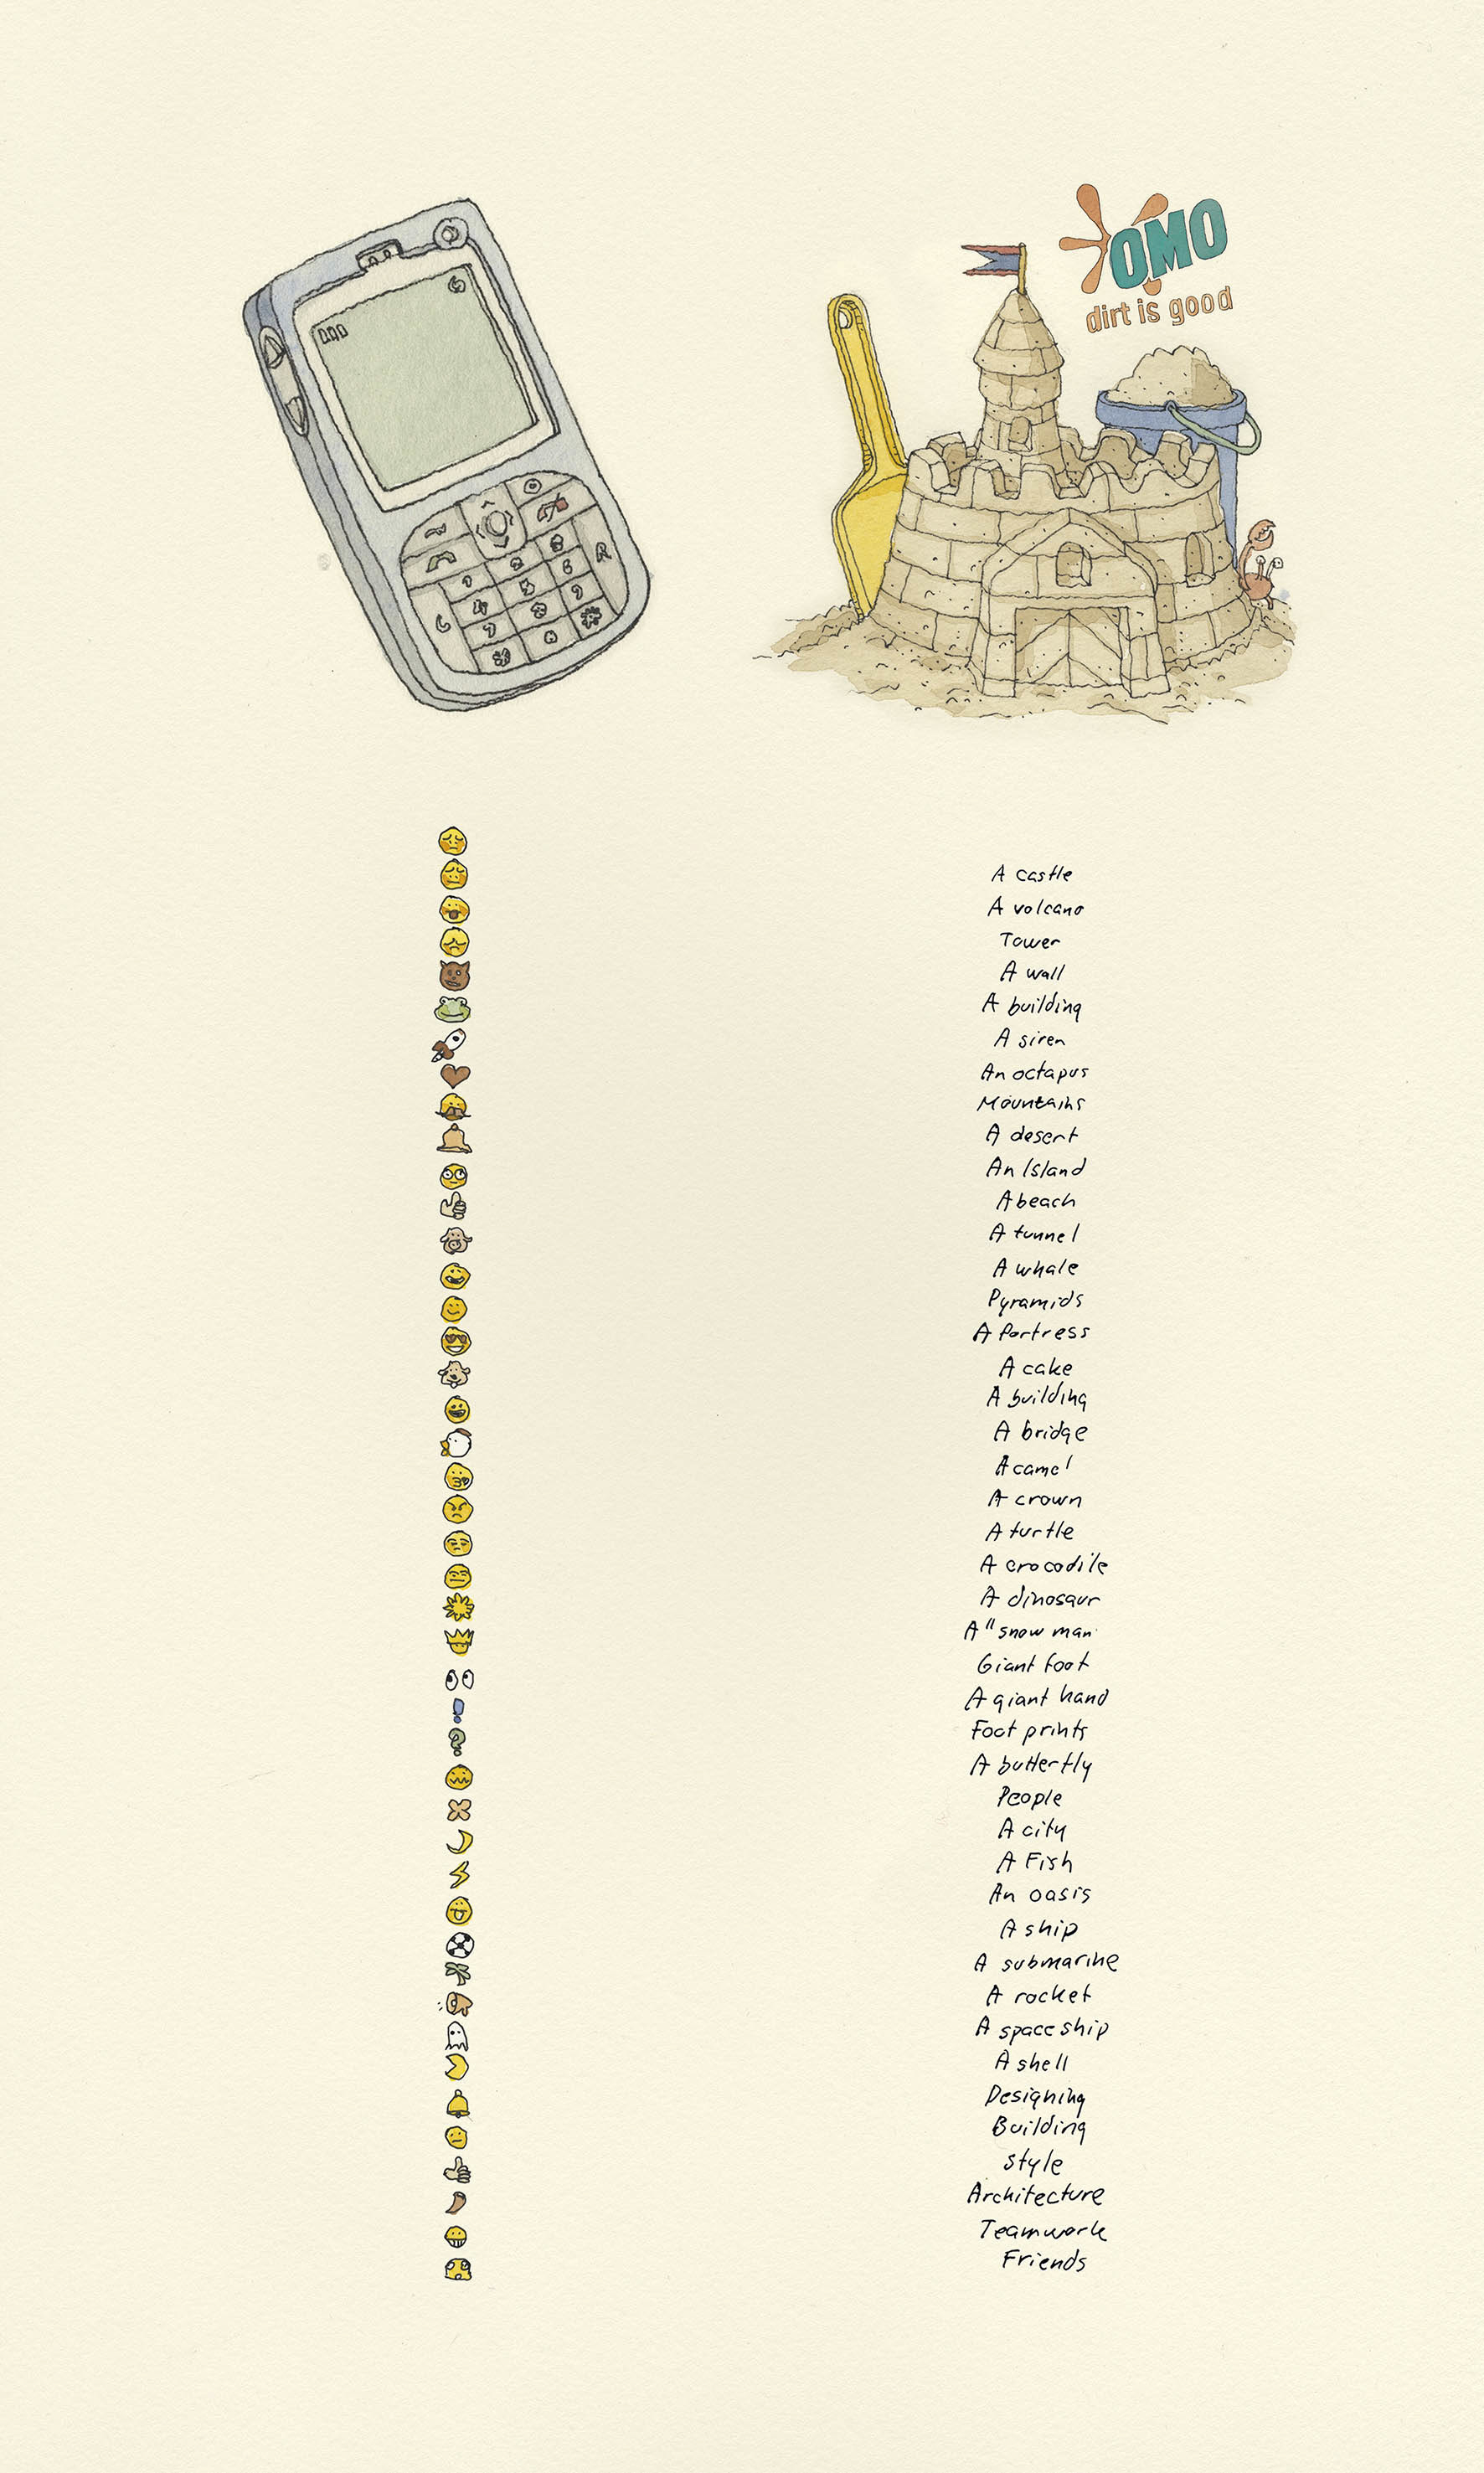 OMO
dirt is good
A castle
A volcano
Tower
A wall
A building
A siren
An octapus
Mountains
A desert
An Island
A beach
A tunnel
A whale
Pyramids
A fortress
A cake
A building
A bridge
A camel
A crown
A turtle
A crocodile
A dinosaur
A "snow man
Giant foot
A giant hand
Foot prints
A butterfly
People
A city
A Fish
An oasis
A ship
A submarine
A rocket
A space ship
A shell
Designing
Building
Style
Architecture
Teamwork
Friends